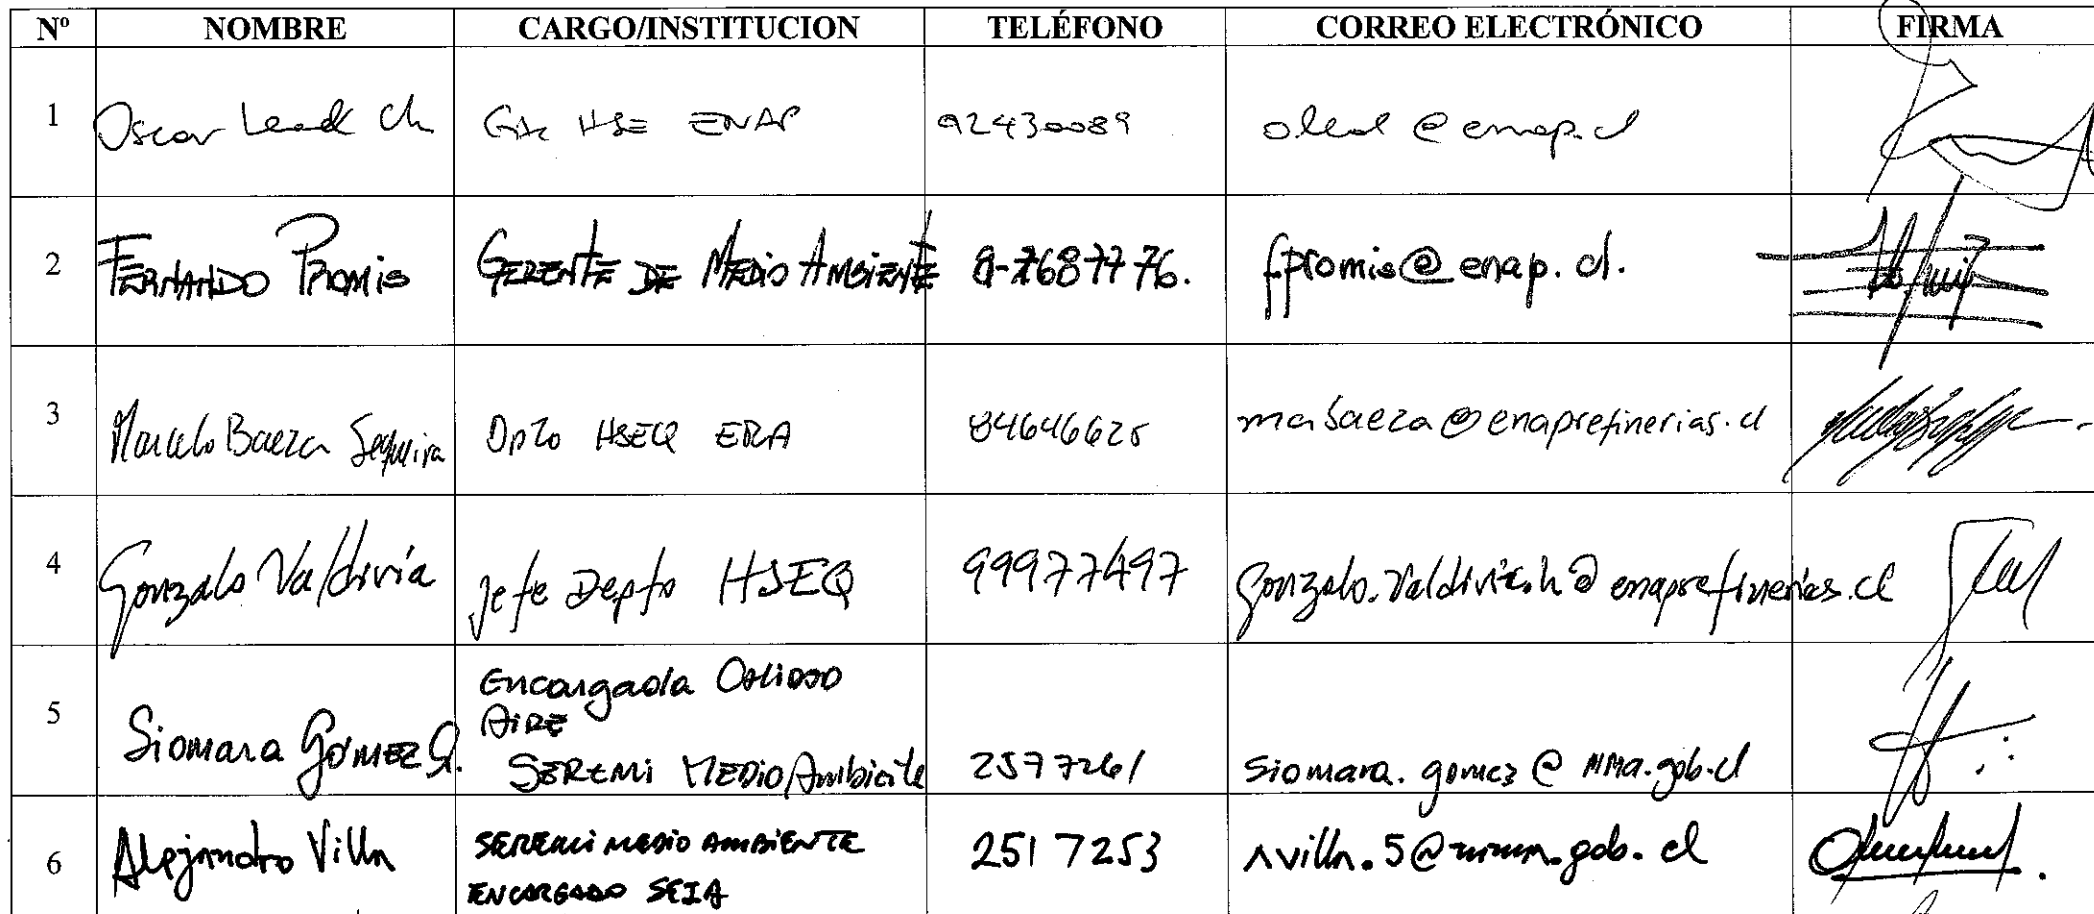 Nº NOMBRE CARGO/INSTITUCION TELÉFONO CORREO ELECTRÓNICO FIRMA
1 Oscar Leal Ch HSE ENAP 92430089 oleal@enap.cl
2 FERNANDO PROMIS GERENTE DE MEDIO AMBIENTE 8-7687776. fpromis@enap.cl.
3 Marcelo Baeza Sequeira Dpto HSEQ ERA 84646625 mabaeza@enaprefinerias.cl
4 Gonzalo Valdivia Jefe Depto HSEQ 99977497 enaprefinerias.cl
Encargada Calidad
AIRE
5 Siomara Gómez G. SEREMI MEDIO Ambiente 2577261 siomara.gomez@MMA.gob.cl
6 Alejandro Villa SEREMI MEDIO AMBIENTE 2517253 avilla.5@mma.gob.cl
ENCARGADO SEIA